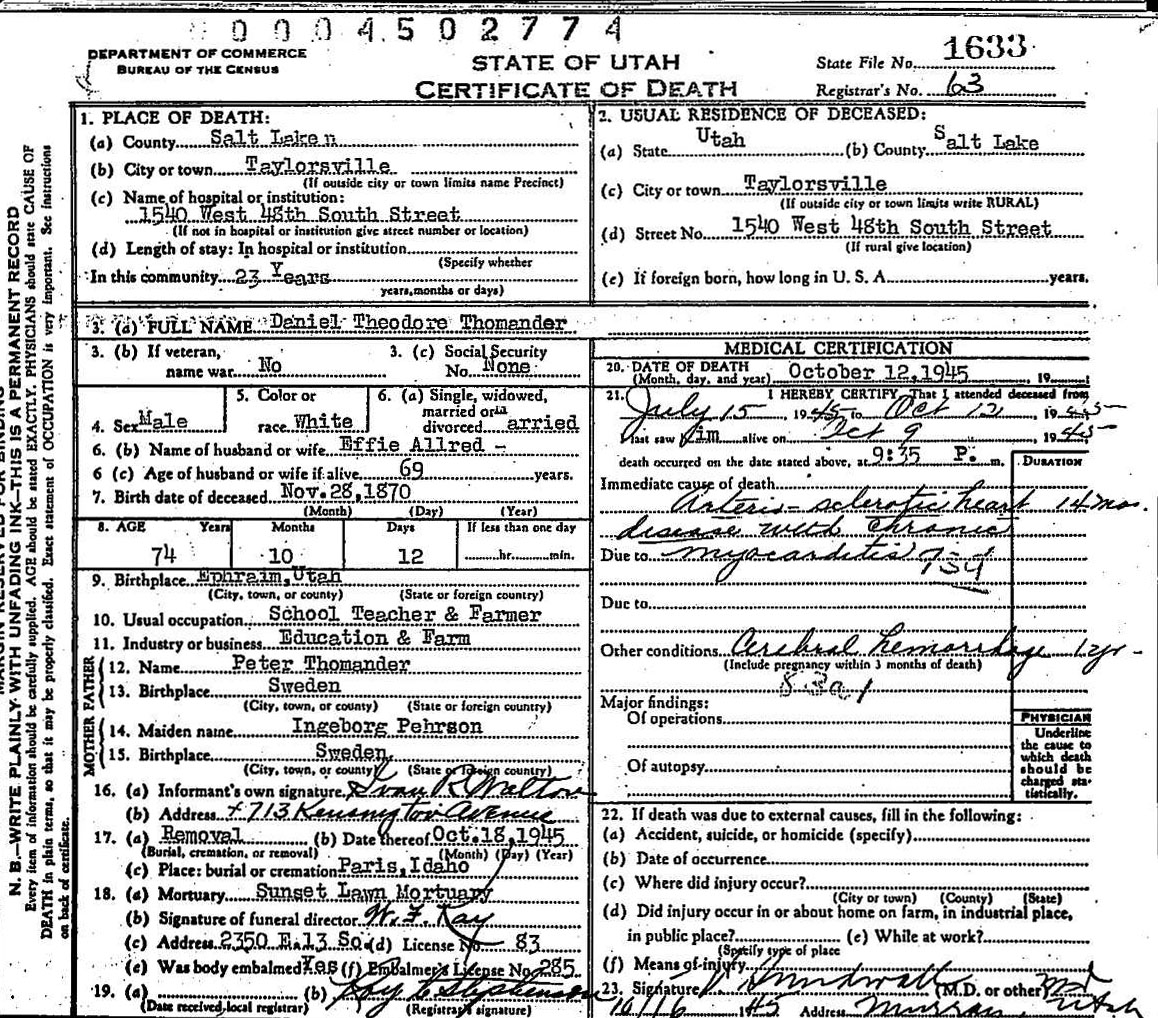 0 0 0 4 5 0 2 7 7 4
DEPARTMENT OF COMMERCE
BUREAU OF THE CENSUS
STATE OF UTAH
CERTIFICATE OF DEATH
State File No. 1633
Registrar's No. 63
N. B.—WRITE PLAINLY WITH UNFADING INK—THIS IS A PERMANENT RECORD
Every item of information should be carefully supplied. AGE should be stated EXACTLY. PHYSICIANS should state CAUSE OF
DEATH in plain terms, so that it may be properly classified. Exact statement of OCCUPATION is very important. See instructions
on back of certificate.
1. PLACE OF DEATH:
(a) County Salt Lake n
(b) City or town Taylorsville
(If outside city or town limits name Precinct)
(c) Name of hospital or institution:
1540 West 48th South Street
(If not in hospital or institution give street number or location)
(d) Length of stay: In hospital or institution
(Specify whether
In this community 23 Years
years, months or days)
2. USUAL RESIDENCE OF DECEASED:
(a) State Utah (b) County Salt Lake
(c) City or town Taylorsville
(If outside city or town limits write RURAL)
(d) Street No. 1540 West 48th South Street
(If rural give location)
(e) If foreign born, how long in U. S. A. years.
3. (a) FULL NAME Daniel Theodore Thomander
3. (b) If veteran, name war No
3. (c) Social Security No. None
4. Sex Male
5. Color or race White
6. (a) Single, widowed, married or divorced arried
6. (b) Name of husband or wife Effie Allred -
6 (c) Age of husband or wife if alive 69 years.
7. Birth date of deceased Nov. 28, 1870
(Month) (Day) (Year)
8. AGE Years Months Days If less than one day
74 10 12 hr. min.
9. Birthplace Ephraim, Utah
(City, town, or county) (State or foreign country)
10. Usual occupation School Teacher & Farmer
11. Industry or business Education & Farm
FATHER
12. Name Peter Thomander
13. Birthplace Sweden
(City, town, or county) (State or foreign country)
MOTHER
14. Maiden name Ingeborg Pehrson
15. Birthplace Sweden
(City, town, or county) (State or foreign country)
16. (a) Informant's own signature Ivan R Walton
(b) Address 713 Kensington Avenue
17. (a) Removal (b) Date thereof Oct. 18, 1945
(Burial, cremation, or removal) (Month) (Day) (Year)
(c) Place: burial or cremation Paris, Idaho
18. (a) Mortuary Sunset Lawn Mortuary
(b) Signature of funeral director W. F. Kay
(c) Address 2350 E. 13 So. (d) License No. 83
(e) Was body embalmed Yes (f) Embalmer's License No. 285
19. (a) (b) Stephenson
(Date received local registrar) (Registrar's signature)
MEDICAL CERTIFICATION
20. DATE OF DEATH
(Month, day, and year) October 12, 1945, 19
21. I HEREBY CERTIFY, That I attended deceased from
July 15 1945 to Oct 12 1945
last saw him alive on Oct 9 1945
death occurred on the date stated above, at 9:35 P. m.
DURATION
Immediate cause of death
Arterio-sclerotic heart 14 mos.
disease with chronic
Due to myocarditis
Due to
Other conditions Cerebral hemorrhage 1 yr -
(Include pregnancy within 3 months of death)
83a1
Major findings:
Of operations
Of autopsy
PHYSICIAN
Underline
the cause to
which death
should be
charged sta-
tistically.
22. If death was due to external causes, fill in the following:
(a) Accident, suicide, or homicide (specify)
(b) Date of occurrence
(c) Where did injury occur?
(City or town) (County) (State)
(d) Did injury occur in or about home on farm, in industrial place,
in public place? (e) While at work?
(Specify type of place
(f) Means of injury
23. Signature (M.D. or other) md
10/16 1945 Address Murray Utah